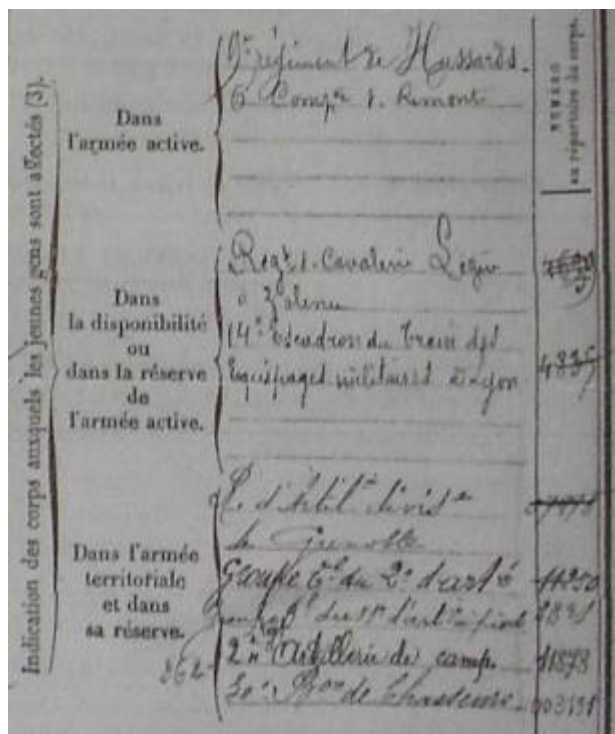 Indication des corps auxquels les jeunes gens sont affectés (3).
NUMÉRO
au répertoire du corps.
Dans
l'armée active.
9e régiment de Hussards.
6e Compie d. Remonte
Dans
la disponibilité
ou
dans la réserve
de
l'armée active.
Regt d. Cavalerie Légère
à Valence
14e Escadron du Train des
Equipages militaires à Lyon
4835
Dans l'armée
territoriale
et dans
sa réserve.
de Grenoble
Groupe Tal du 2e d'artie 11250
du d'art à pied 2821
262
2e Artillerie de camp. 11878
de Chasseurs